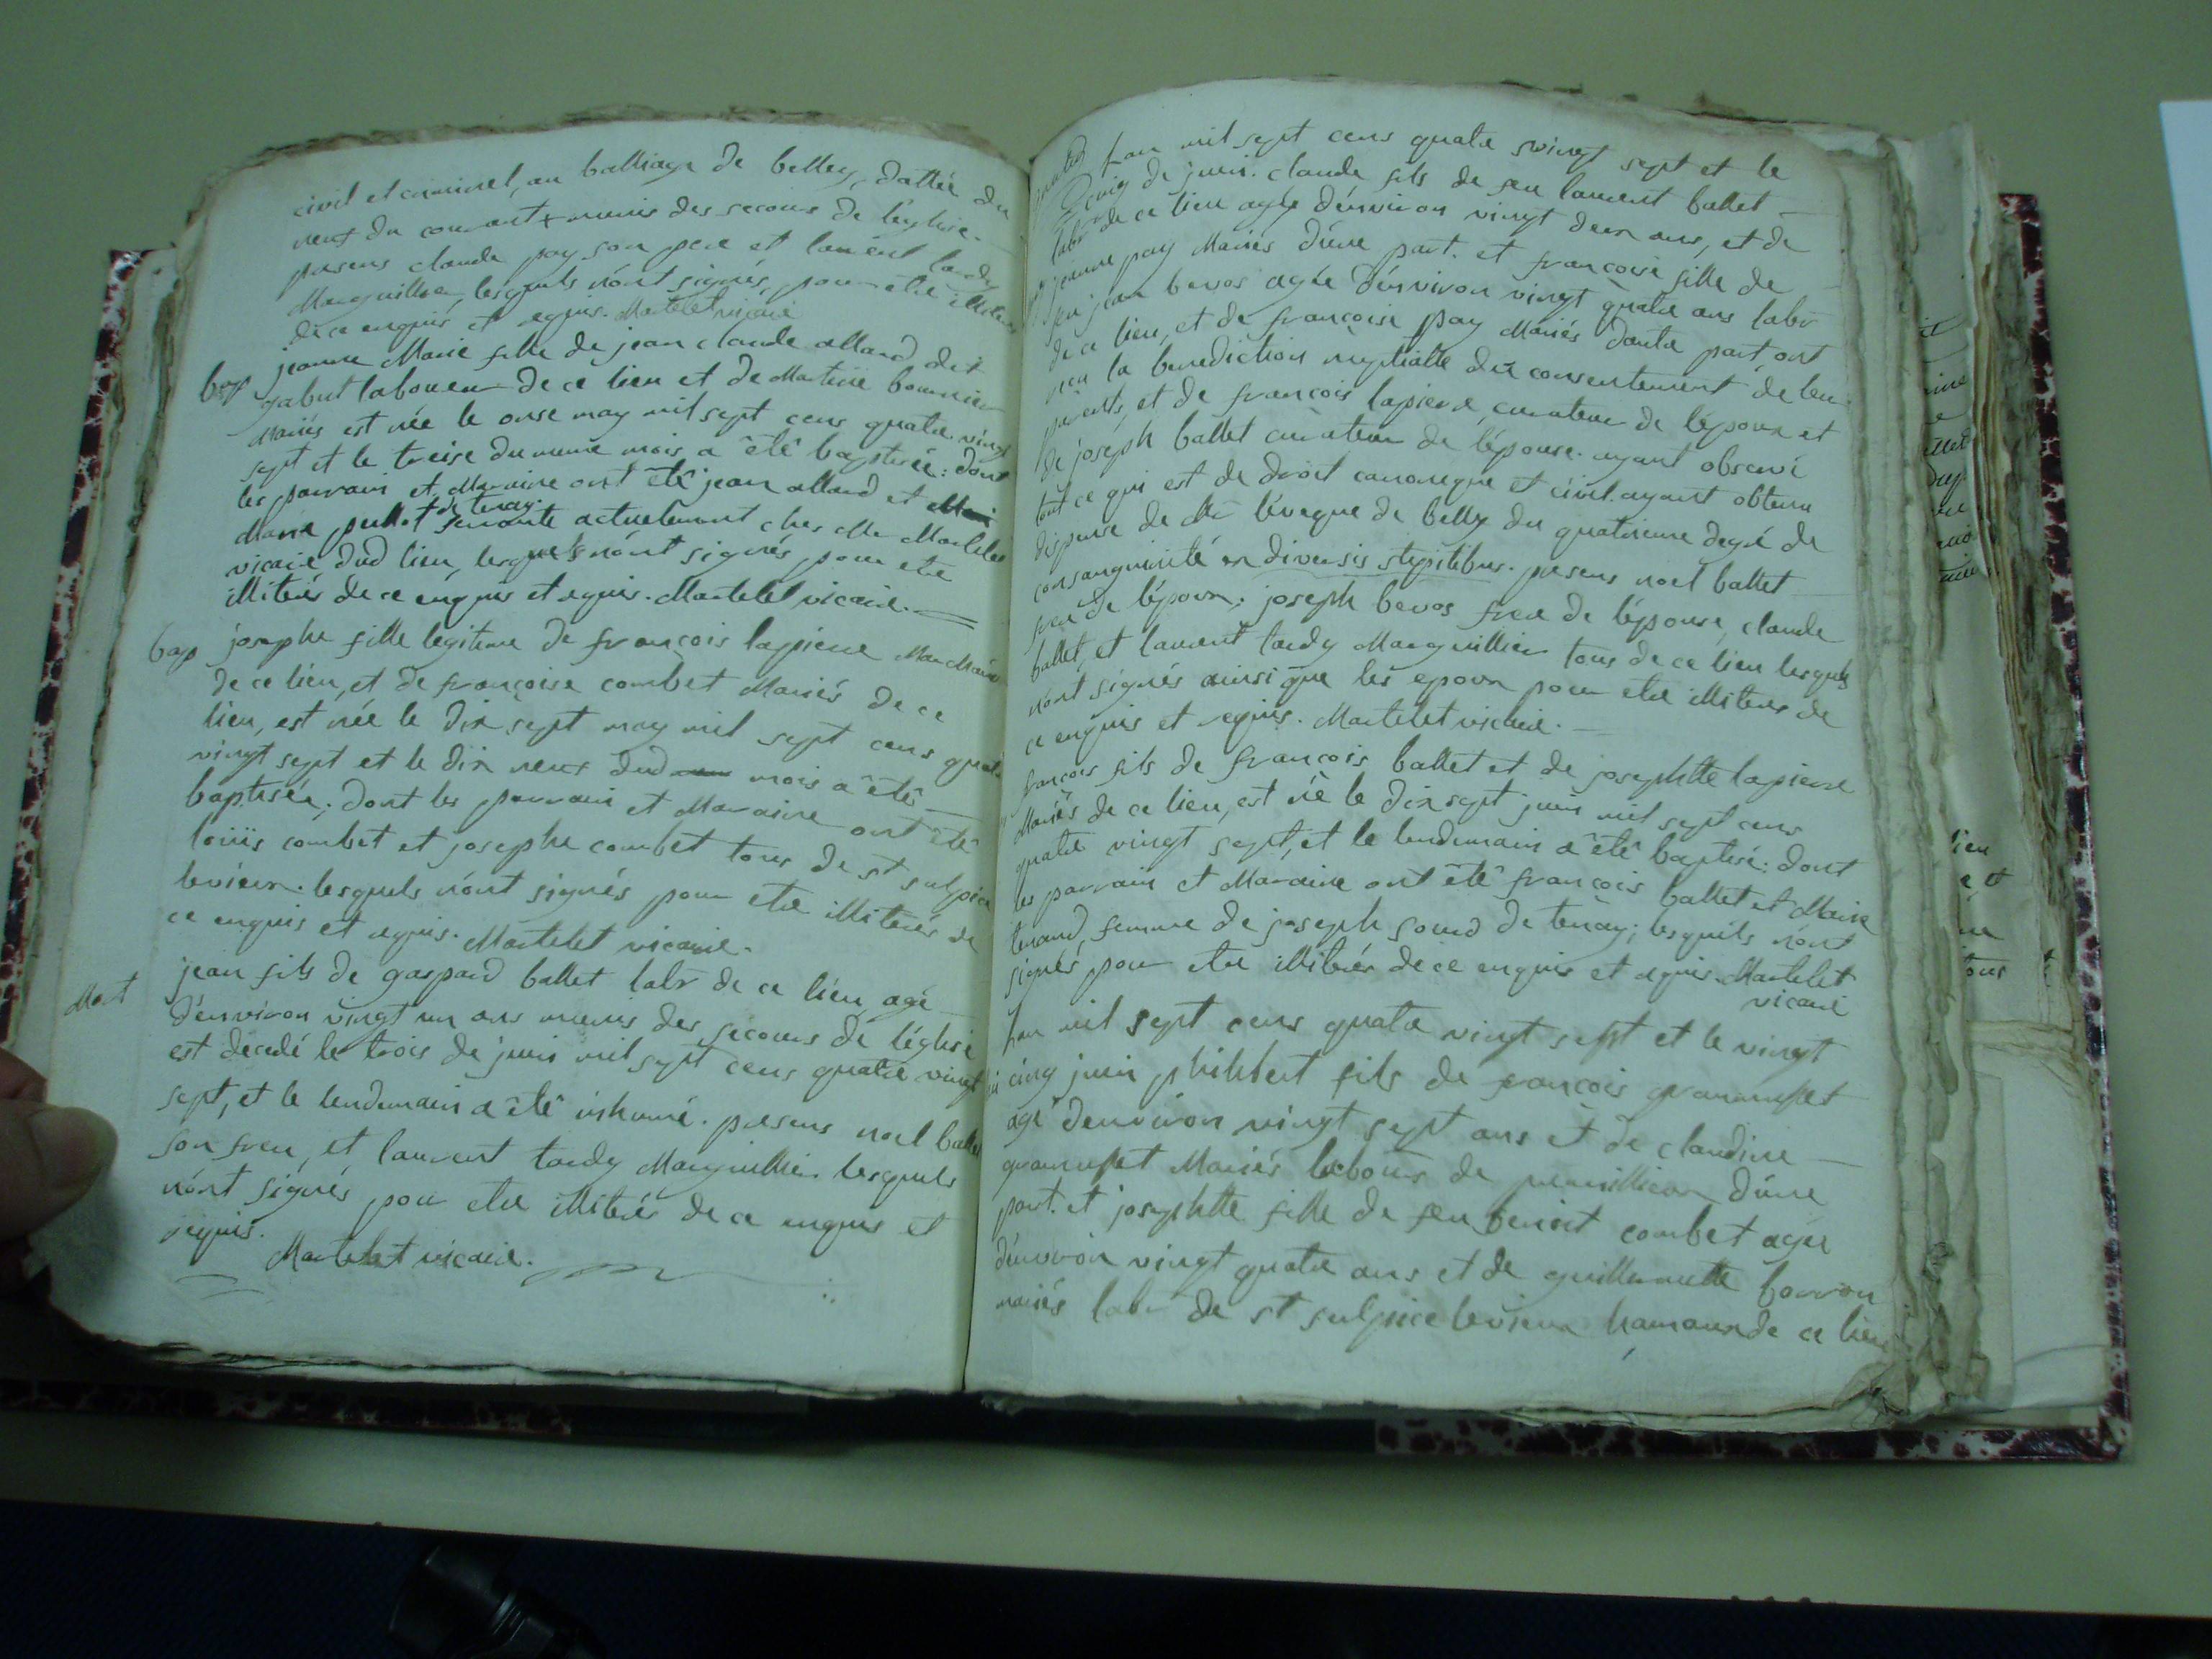 civil et criminel, au balliage de belley, dattée du
neuf du courant + munis des secours de l'eglise.
presens claude pay son pere et laurent tardy
Marguillier, lesquels n'ont signés, pour etre illiterés
de ce enquis et requis. Martelet vicaire
bap
jeanne Marie fille de jean claude allard dit
gabut laboueur de ce lieu et de Martine bournier
Mariés est née le onse may mil sept cens quatre vingt
sept et le treise du meme mois a êtê baptisée: dont
les parrain et Maraine ont êtê jean allard et
de tenay
Marie pullot servante actuelement ches Mr Martelet
vicaire dud lieu, lesquels n'ont signés pour etre
illiterés de ce enquis et requis. Martelet vicaire.
bap
josephe fille legitime de françois lapierre Marchand
de ce lieu, et de françoise combet Mariés de ce
lieu, est née le dix sept may mil sept cens quatre
vingt sept et le dix neuf dud mois a êtê
baptisée; dont les parrain et Maraine ont êtê
loüis combet et josephe combet tous de st sulpice
levieux. lesquels n'ont signés pour etre illiterés de
ce enquis et requis. Martelet vicaire.
Mort
jean fils de gaspard ballet labr de ce lieu agé
d'environ vingt un ans munis des secours de l'église
est décedé le trois de juin mil sept cens quatre vingt
sept, et le lendemain a êtê inhumé. presens noel ballet
son frere, et laurent tardy Marguillier lesquels
n'ont signés pour etre illiterés de ce enquis et
requis.
Martelet vicaire.
l'an mil sept cens quatre vingt sept et le
cinq de juin. claude fils de feu laurent ballet
labr de ce lieu agé d'environ vingt deux ans, et de
jeanne pay Mariés d'une part. et françoise fille de
feu jean bevos agée d'environ vingt quatre ans labr
de ce lieu, et de françoise pay Mariés d'autre part, ont
reçu la benediction nuptialle du consentement de leur
parents, et de françois lapierre curateur de l'époux et
de joseph ballet curateur de l'épouse. ayant observé
tout ce qui est de droit canonique et civil. ayant obtenu
dispense de Mr l'éveque de belley du quatrieme degré de
consanguinité in diversis stipitibus. presens noel ballet
frere de l'époux; joseph bevos frere de l'épouse, claude
ballet, et laurent tardy Marguillier tous de ce lieu lesquels
n'ont signés ainsi que les epoux pour etre illiterés de
ce enquis et requis. Martelet vicaire.
françois fils de françois ballet et de josephtte lapierre
Mariés de ce lieu, est né le dix sept juin mil sept cens
quatre vingt sept, et le lendemain a êtê baptisé: dont
les parrain et Maraine ont êtê françois ballet et Marie
femme de joseph de tenay; lesquels n'ont
signés pour etre illiterés de ce enquis et requis. Martelet
vicaire
l'an mil sept cens quatre vingt sept et le vingt
cinq juin philibert fils de françois
agé d'environ vingt sept ans et de claudine
Mariés labours de d'une
part. et josephtte fille de feu benoit combet agée
d'environ vingt quatre ans et de guillermette borron
mariés labr de st sulpice levieux de ce lieu